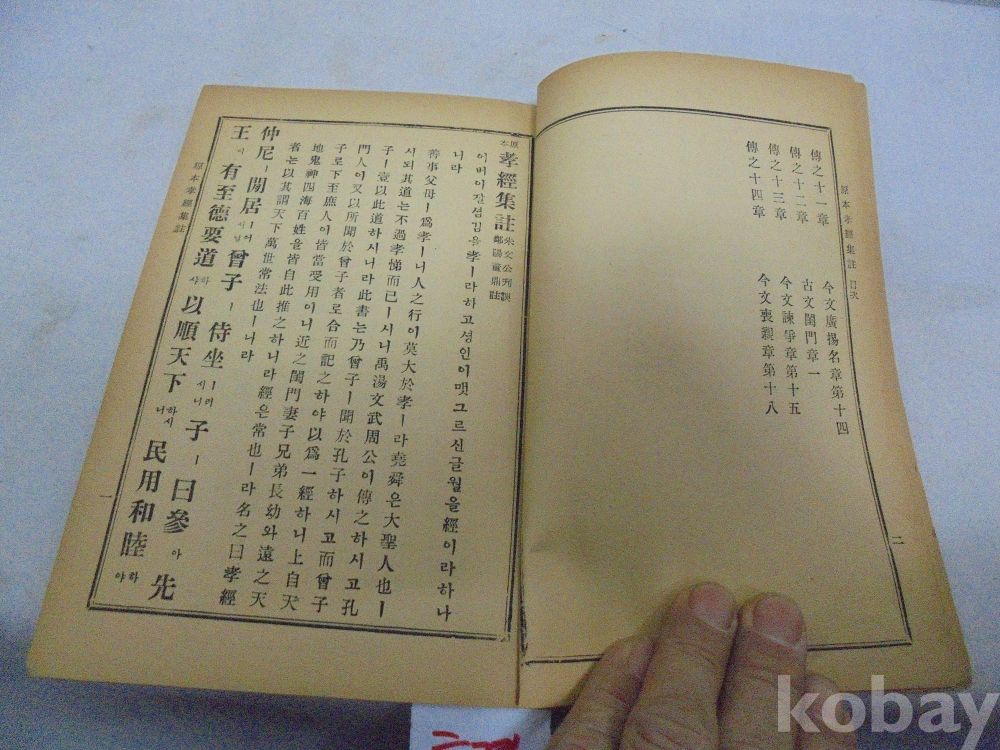 原本孝經集註 目次
傳之十一章 今文廣揚名章第十四
傳之十二章 古文閨門章一
傳之十三章 今文諫爭章第十五
傳之十四章 今文喪親章第十八
二
原本 孝經集註 朱文公刊誤 鄱陽董鼎註
어버이잘셤김을孝ㅣ라하고셩인이맷그르신글월을經이라하나
니라
善事父母ㅣ爲孝ㅣ니人之行이莫大於孝ㅣ라堯舜은大聖人也ㅣ
시되其道는不過孝悌而已ㅣ시니禹湯文武周公이傳之하시고孔
子ㅣ壹以此道하시니라此書는乃曾子ㅣ聞於孔子하시고而曾子
門人이又以所聞於曾子者로合而記之하야以爲一經하니上自天
子로下至庶人이皆當受用이니近之閨門妻子兄弟長幼와遠之天
地鬼神四海百姓을皆自此推之하니라經은常也ㅣ라名之曰孝經
者는以其謂天下萬世常法也ㅣ니라
仲尼ㅣ閒居ㅣ어시늘曾子ㅣ侍坐ㅣ러시니子ㅣ曰參아先
王이有至德要道하샤以順天下하시니民用和睦하야
原本孝經集註
一
kobay